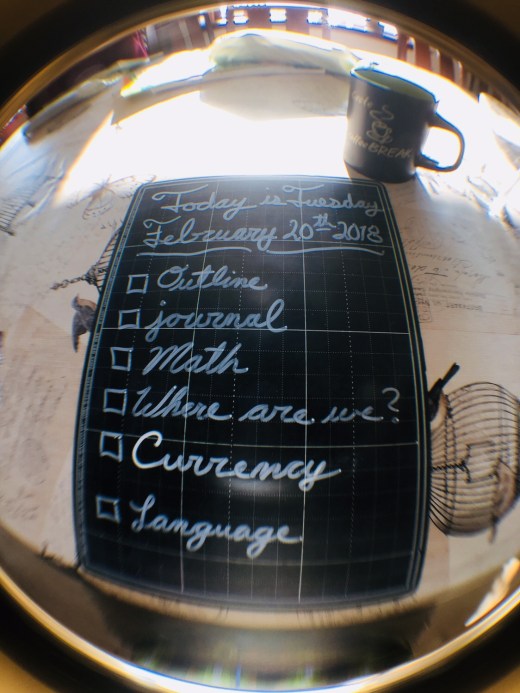 Today is Tuesday
February 20th 2018
Outline
journal
Math
Where are we?
Currency
Language
BREAK